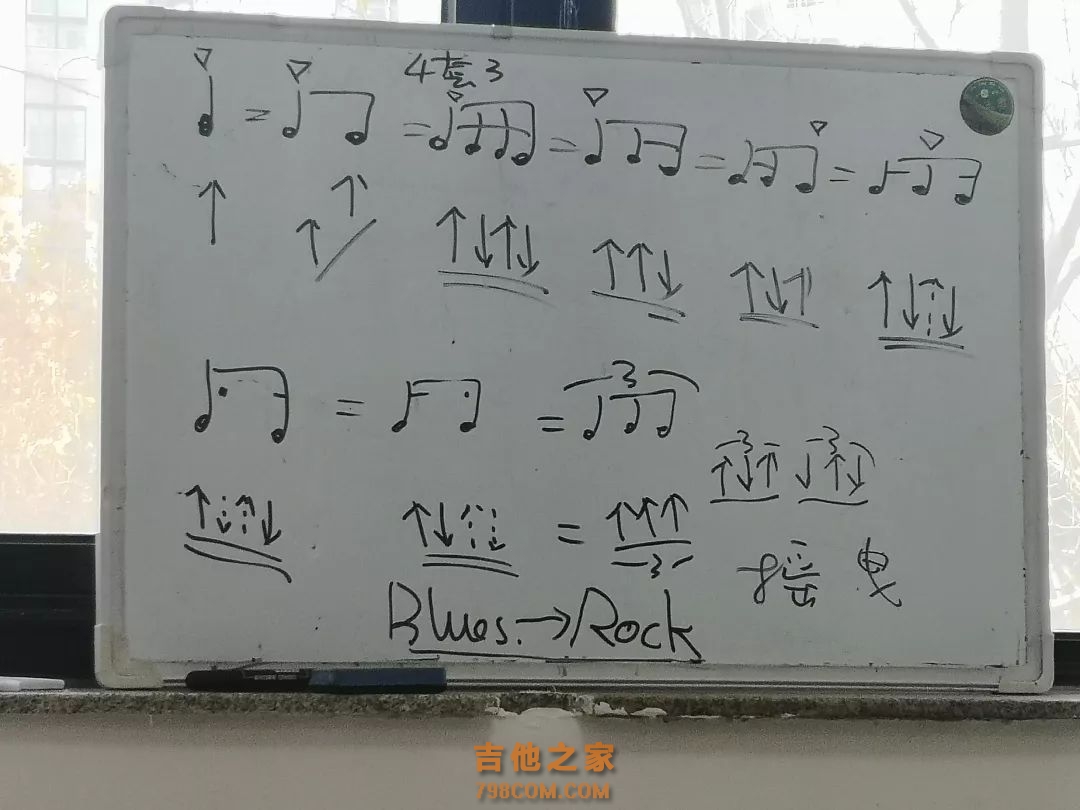 4 3
3
3 3
3
摇曳
Blues.→Rock
吉他之家
798COM.COM